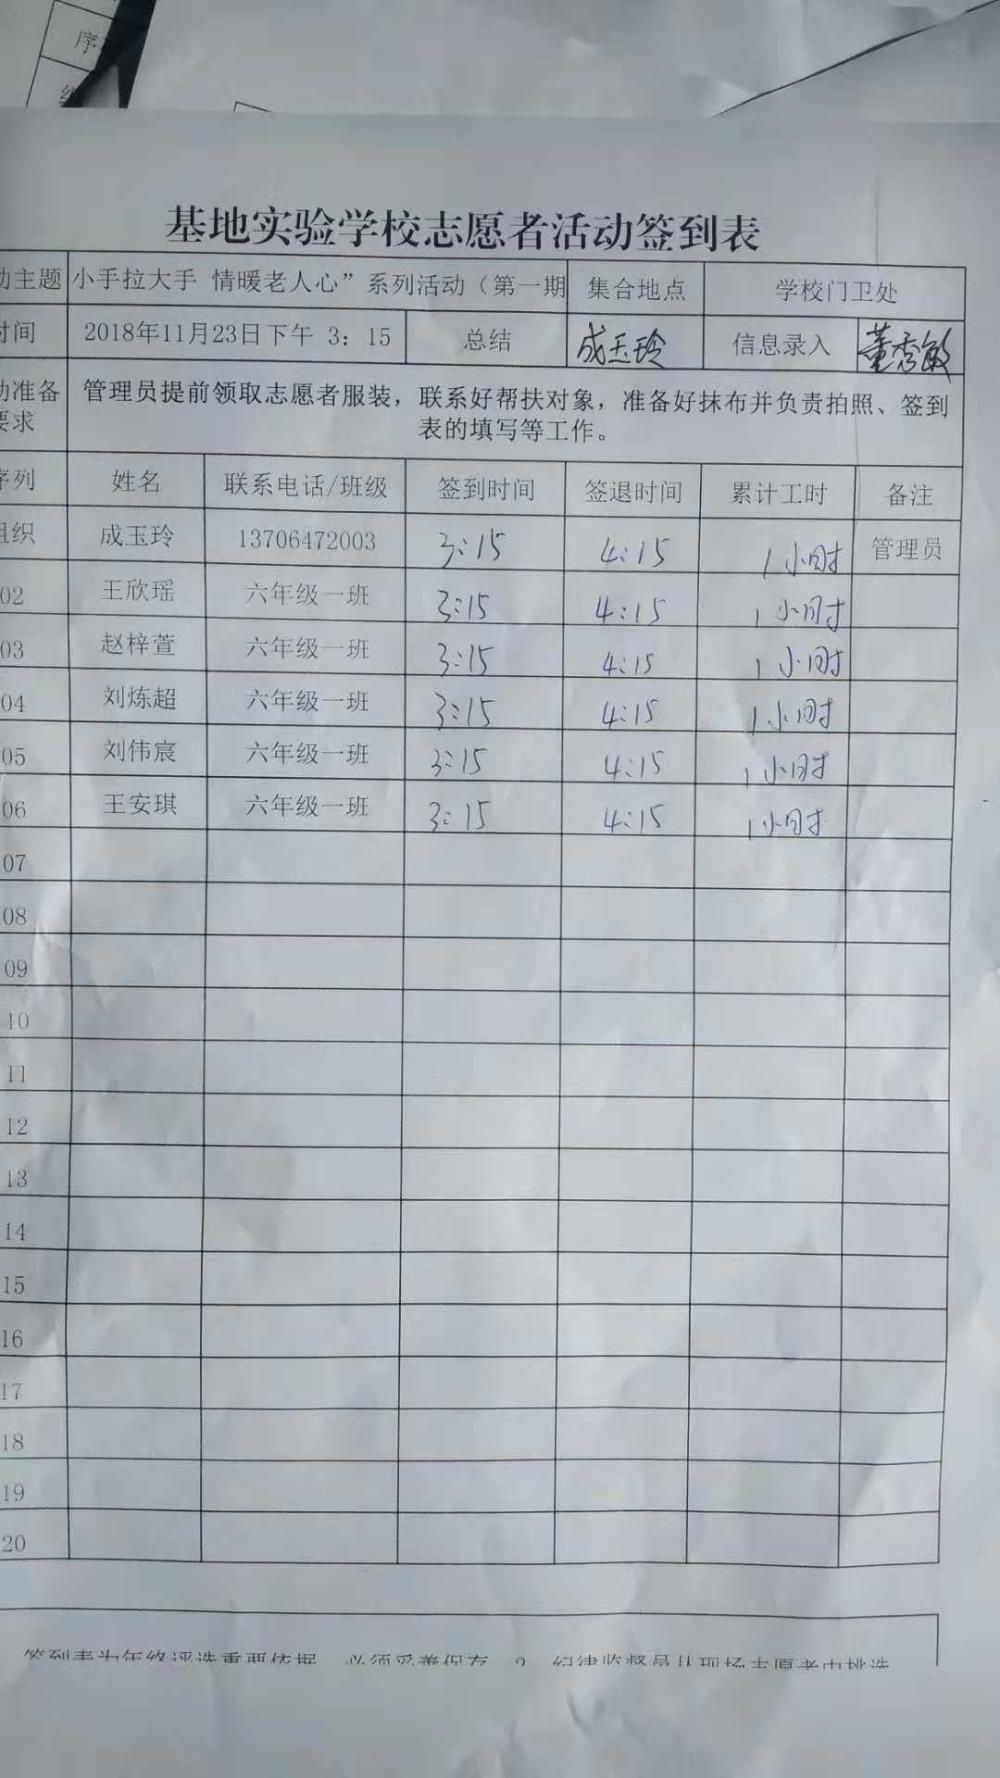 序
基地实验学校志愿者活动签到表
动主题 小手拉大手 情暖老人心”系列活动（第一期 集合地点 学校门卫处
时间 2018年11月23日下午 3：15 总结 成玉玲 信息录入 董秀敏
动准备 管理员提前领取志愿者服装，联系好帮扶对象，准备好抹布并负责拍照、签到
要求 表的填写等工作。
序列 姓名 联系电话/班级 签到时间 签退时间 累计工时 备注
组织 成玉玲 13706472003 3:15 4:15 1小时 管理员
02 王欣瑶 六年级一班 3:15 4:15 1小时
03 赵梓萱 六年级一班 3:15 4:15 1小时
04 刘炼超 六年级一班 3:15 4:15 1小时
05 刘伟宸 六年级一班 3:15 4:15 1小时
06 王安琪 六年级一班 3:15 4:15 1小时
07
08
09
10
11
12
13
14
15
16
17
18
19
20
签到表为年终评选重要依据 必须妥善保存 2 纪律监督员从现场志愿者中挑选